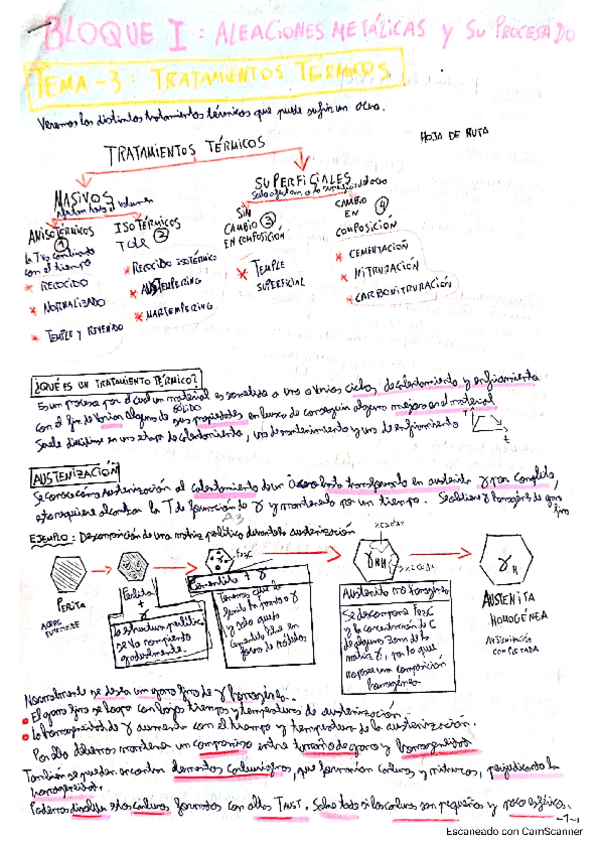 BLOQUE I : ALEACIONES METÁLICAS y SU PROCESADO
TEMA-3: TRATAMIENTOS TÉRMICOS
Veremos los distintos tratamientos térmicos que puede sufrir un acero.
HOJA DE RUTA
TRATAMIENTOS TÉRMICOS
MASIVOS
Afectan todo el volumen
SUPERFICIALES
Solo afectan a la superficie
ANISOTÉRMICOS
1
la T va cambiando
con el tiempo
* RECOCIDO
* NORMALIZADO
* TEMPLE Y REVENIDO
ISOTÉRMICOS
T cte 2
* RECOCIDO ISOTÉRMICO
* AUSTEMPERING
* MARTEMPERING
SIN
CAMBIO 3
EN COMPOSICIÓN
* TEMPLE
SUPERFICIAL
CAMBIO 4
EN
COMPOSICIÓN
* CEMENTACIÓN
* NITRURACIÓN
* CARBONITRURACIÓN
¿QUÉ ES UN TRATAMIENTO TÉRMICO?
Es un proceso por el cual un material es sometido a uno o varios ciclos de calentamiento y enfriamiento
sólido
con el fin de variar alguna de sus propiedades en busca de conseguir alguna mejora en el material
Suele dividirse en una etapa de calentamiento, una de mantenimiento y una de enfriamiento
T
t
AUSTENIZACIÓN
Se conoce cómo Austenización al calentamiento de un acero hasta transformarlo en austenita γ por completo,
esto requiere alcanzar la T de formación de γ y mantenerlo por un tiempo.
A3
fino
EJEMPLO: Descomposición de una matriz perlítica durante la austenización
Fe3C
PERLITA
ACERO
EUTECTOIDE
Perlita
+
γ
la estructura perlítica
se va rompiendo
gradualmente.
Cementita + γ
Cementita libre en
forma de nódulos.
γ NH
Austenita no homogénea
Se descompone Fe3C
y la concentración de C
de alguna zona de la
matriz γ, por lo que
no posee una composición
homogénea
γ H
AUSTENITA
HOMOGÉNEA
AUSTENIZACIÓN
COMPLETADA
Normalmente se desea un grano fino de γ homogéneo.
• El grano fino se logra con bajos tiempos y temperaturas de austenización.
• La homogeneidad de γ aumenta con el tiempo y temperatura de la austenización.
Por ello debemos mantener un compromiso entre tamaño de grano y homogeneidad
También se pueden encontrar elementos carburígenos, que forman carburos y nitruros, perjudicando la
homogeneidad.
Podemos disolver estos carburos formados con altas TAUST. Sobre todo si los carburos son pequeños y poco esféricos.
-1-
Escaneado con CamScanner